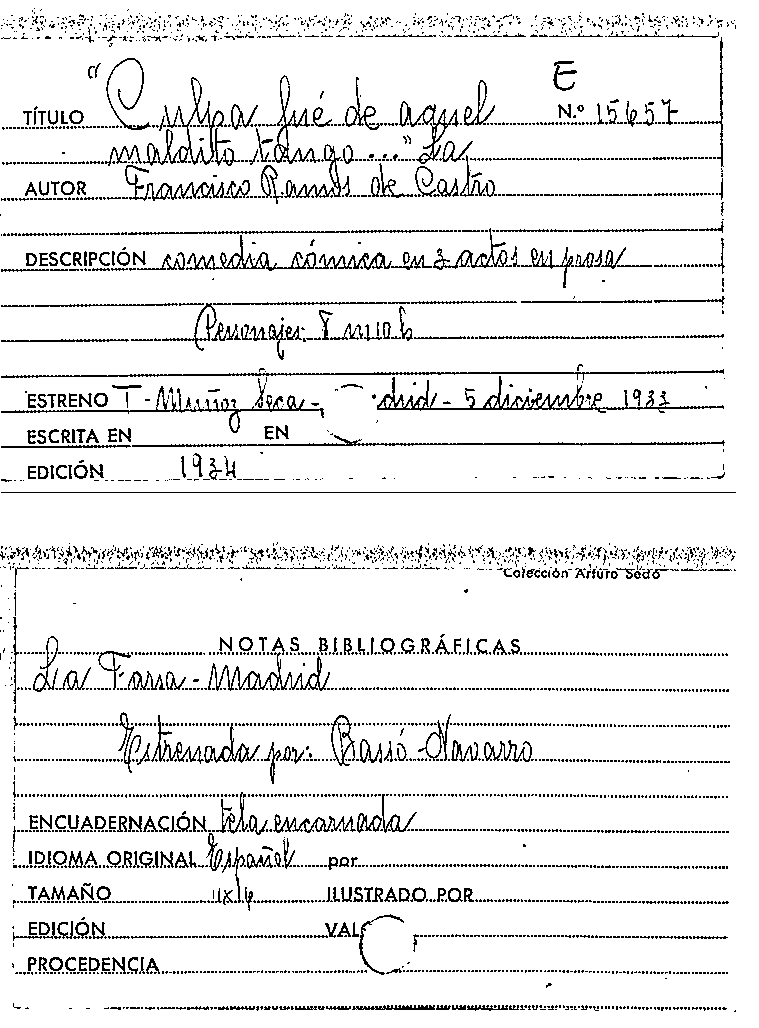 E
TÍTULO "Culpa fué de aquel N.º 15657
maldito tango..." La
AUTOR Francisco Ramos de Castro
DESCRIPCIÓN comedia cómica en 3 actos en prosa
Personajes: 8 m 10 h
ESTRENO T - Muñoz Seca - drid - 5 diciembre 1933
ESCRITA EN EN
EDICIÓN 1934
Colección Arturo Sedó
NOTAS BIBLIOGRÁFICAS
La Farsa - Madrid
Estrenada por: Bassó - Navarro
ENCUADERNACIÓN tela encarnada
IDIOMA ORIGINAL Español por
TAMAÑO ILUSTRADO POR
EDICIÓN VAL
PROCEDENCIA